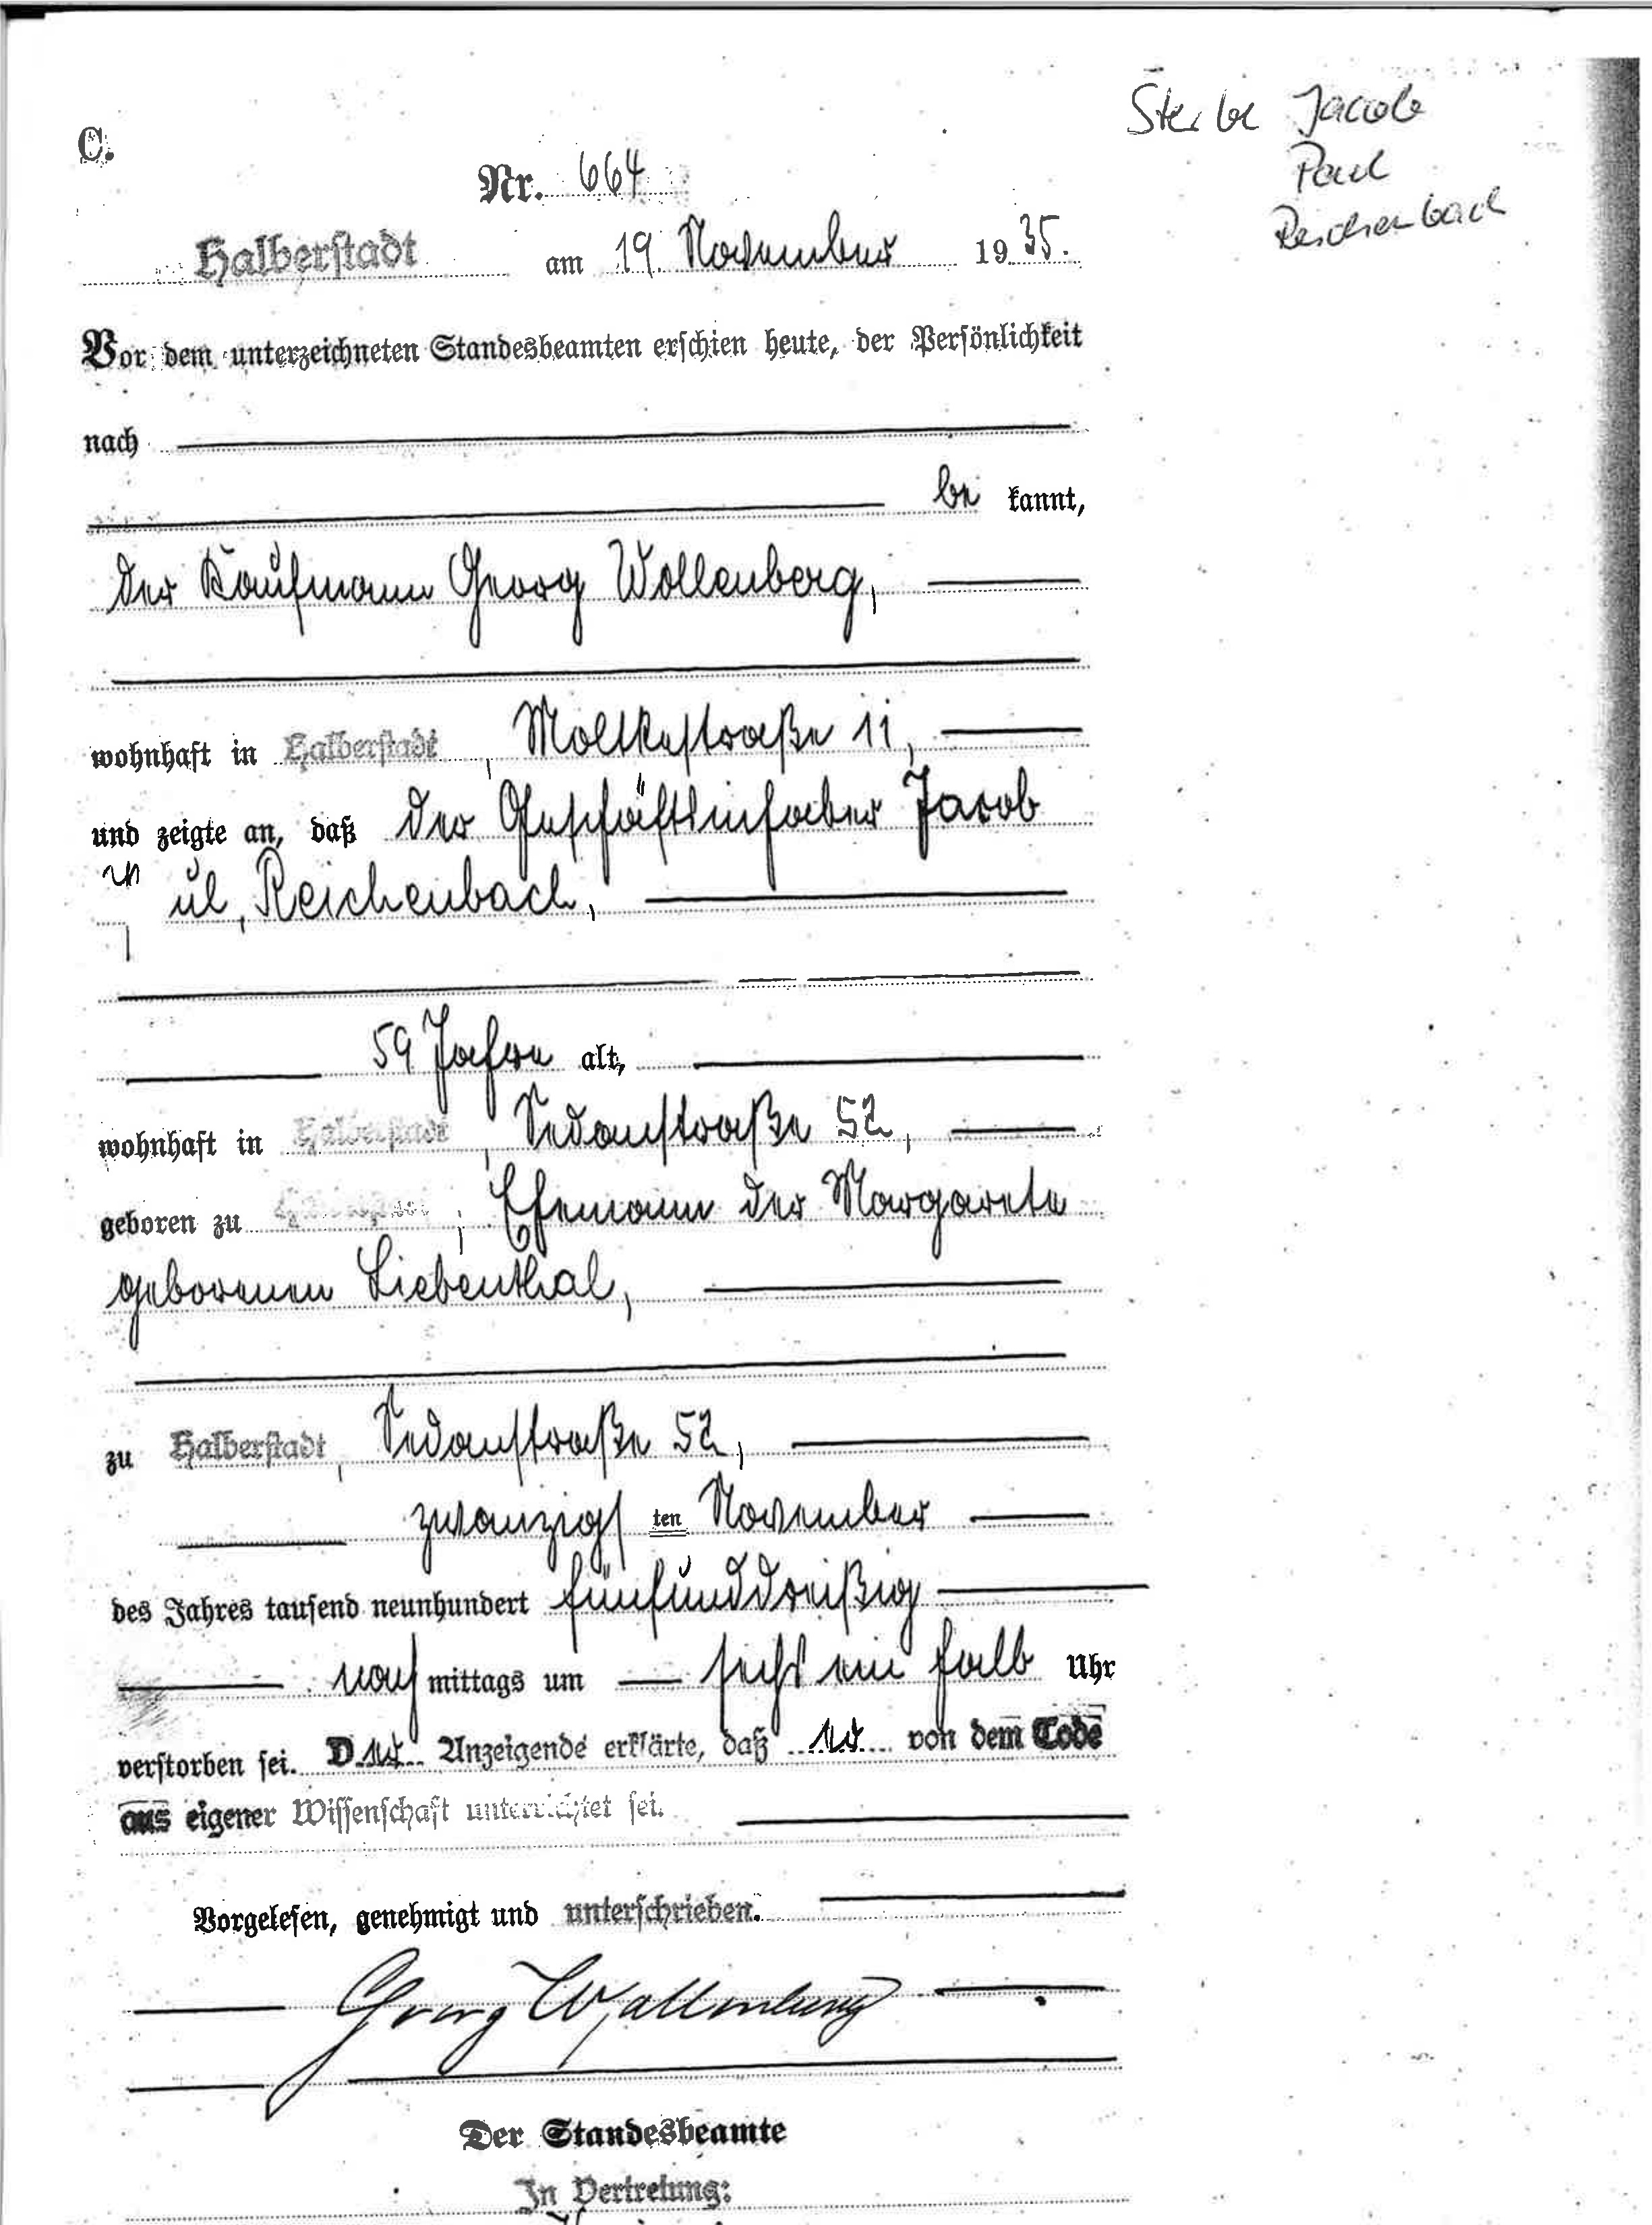 C.
Sterbe Jacob
Paul
Reichenbach
Nr. 664
Halberstadt am 19. November 1935.
Vor dem unterzeichneten Standesbeamten erschien heute, der Persönlichkeit
nach
be kannt,
der Kaufmann Georg Wollenberg,
wohnhaft in Halberstadt, Moltkestraße 11,
und zeigte an, daß der Geschäftsinhaber Jacob
ul, Reichenbach,
59 Jahre alt,
wohnhaft in Halberstadt, Sedanstraße 52,
geboren zu Halberstadt, Ehemann der Margarete
geborenen Liebenthal,
zu Halberstadt, Sedanstraße 52,
zwanzigsten November
des Jahres tausend neunhundert fünfunddreißig
nachmittags um sechs ein halb Uhr
verstorben sei. Der Anzeigende erklärte, daß er von dem Tode
aus eigener Wissenschaft unterrichtet sei.
Vorgelesen, genehmigt und unterschrieben.
Georg Wollenberg
Der Standesbeamte
In Vertretung: